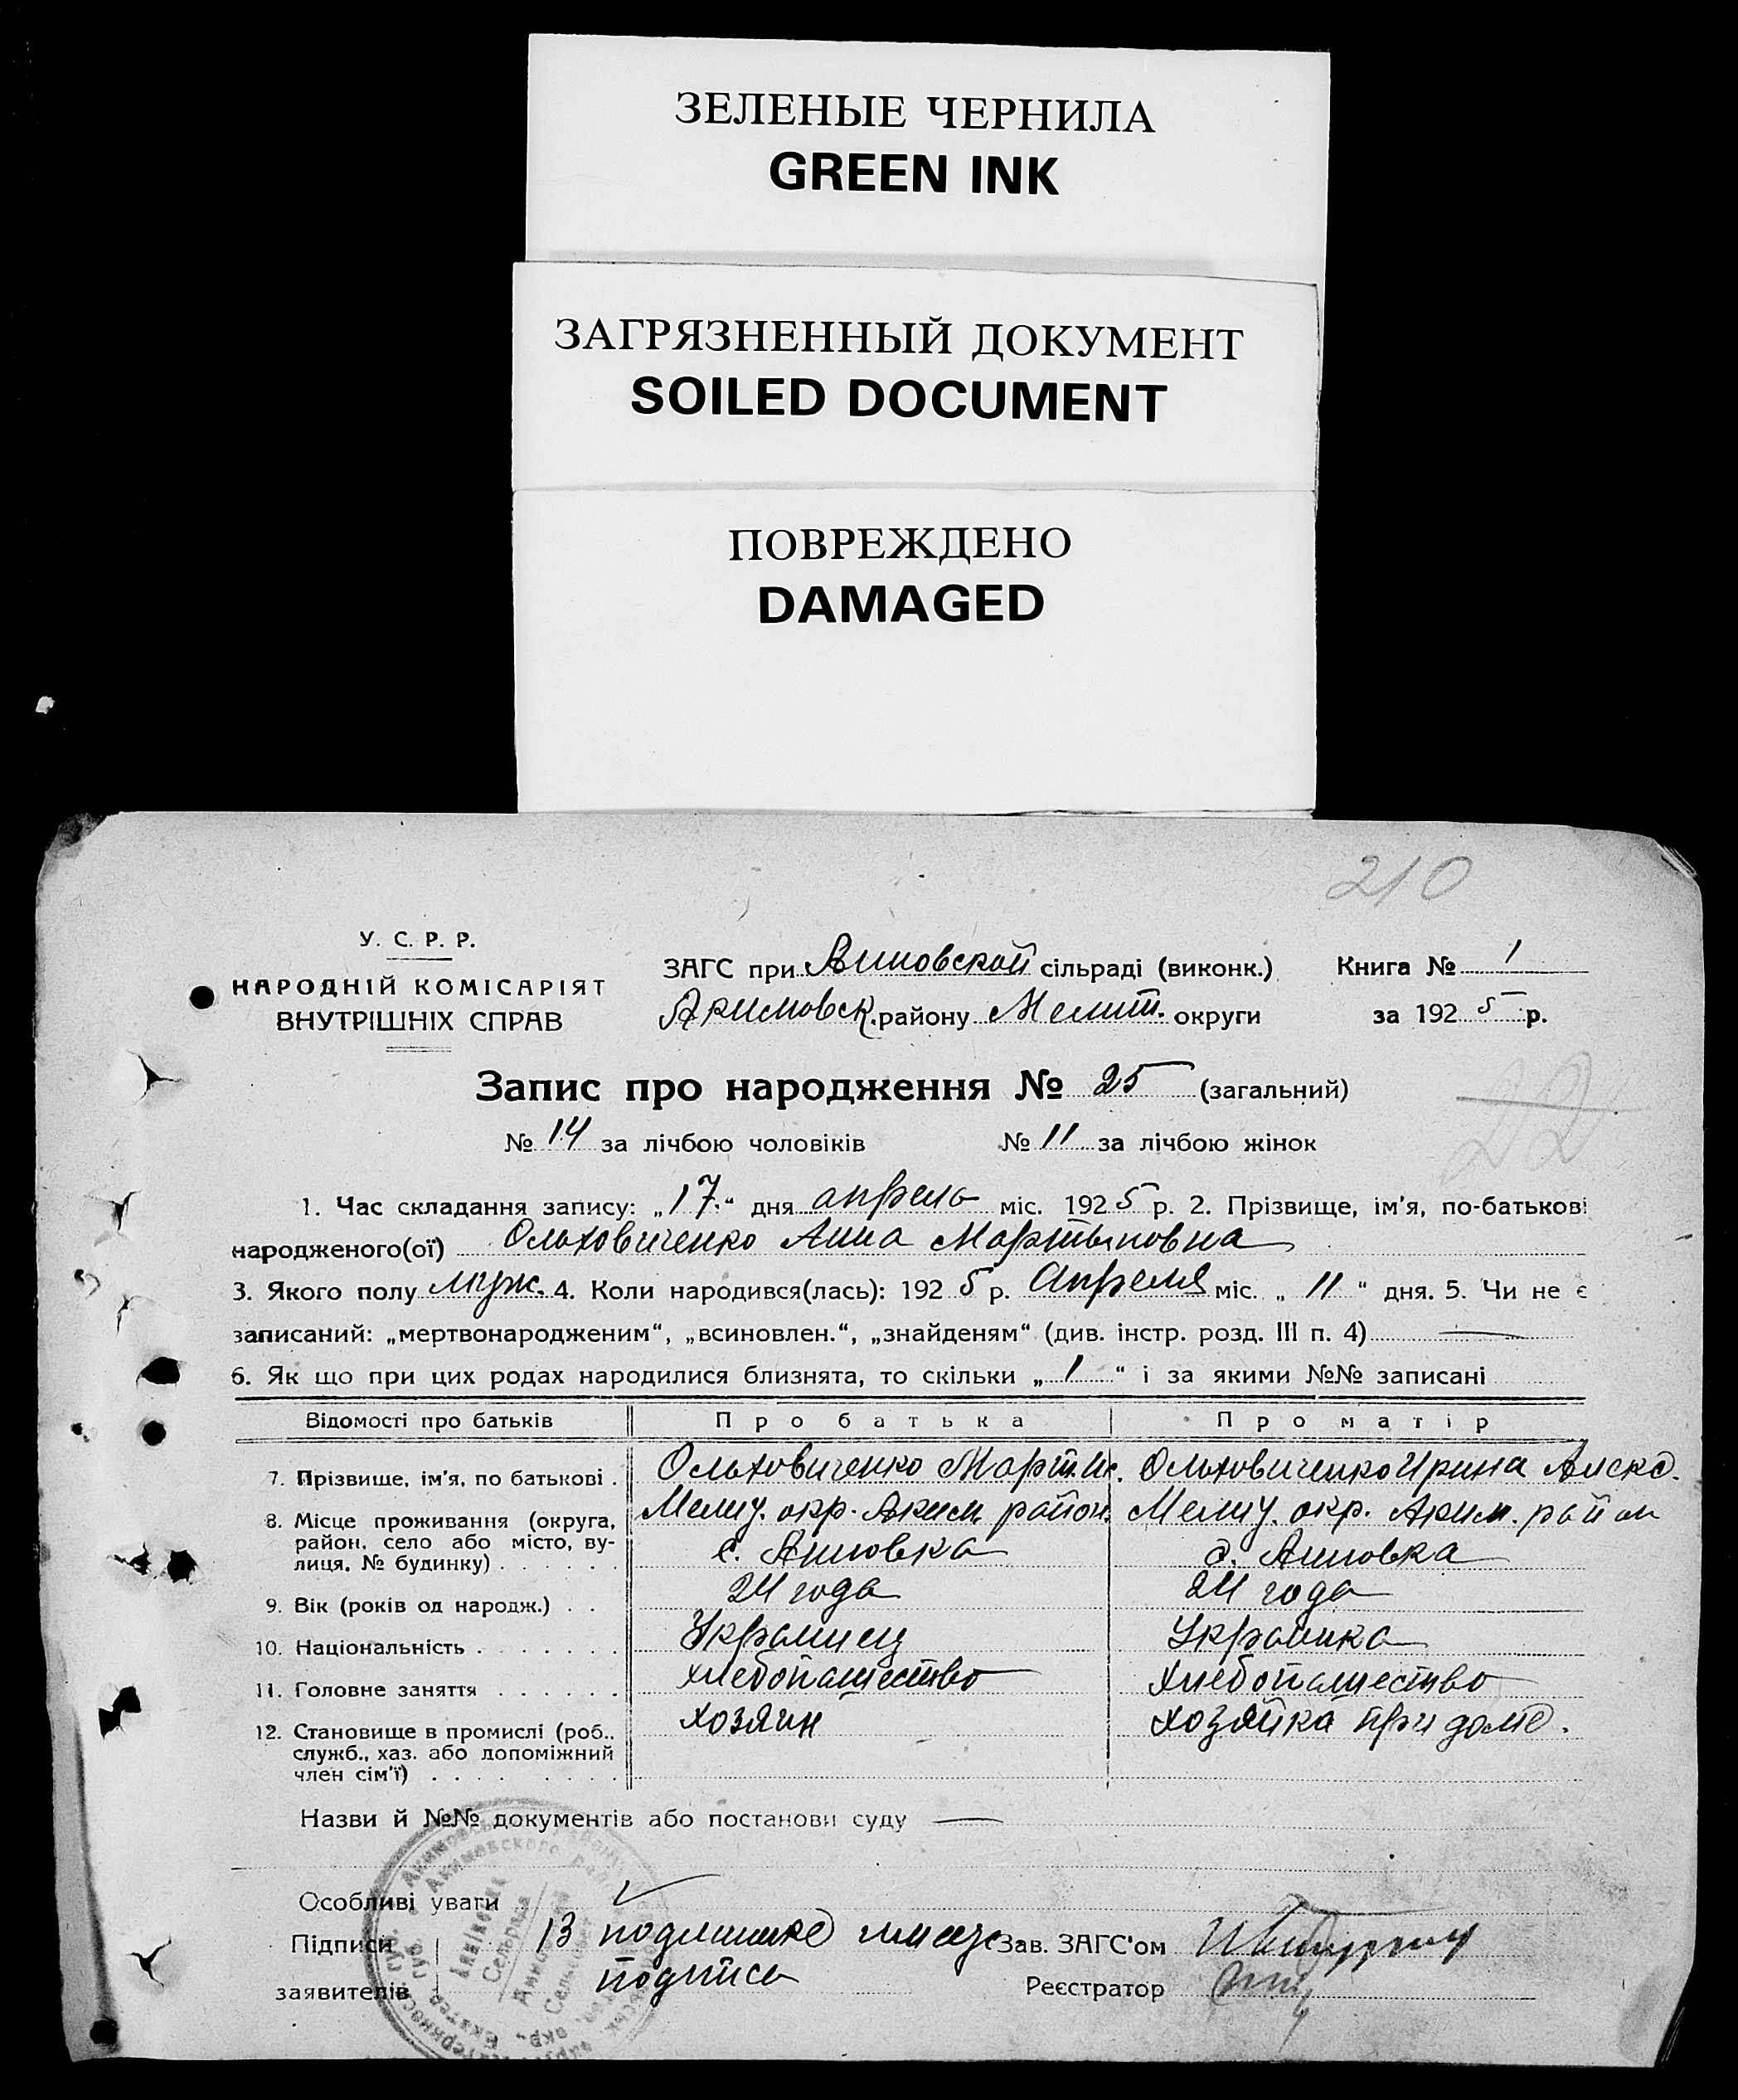 ЗЕЛЕНЫЕ ЧЕРНИЛА
GREEN INK
ЗАГРЯЗНЕННЫЙ ДОКУМЕНТ
SOILED DOCUMENT
ПОВРЕЖДЕНО
DAMAGED
210
У. С. Р. Р.
НАРОДНІЙ КОМІСАРІЯТ
ВНУТРІШНІХ СПРАВ
ЗАГС при Анновской сільраді (виконк.) Книга № 1
Акимовск. району Мелит. округи за 1925 р.
22
Запис про народження № 25 (загальний)
№ 14 за лічбою чоловіків № 11 за лічбою жінок
1. Час складання запису: „17“ дня апрель міс. 1925 р. 2. Прізвище, ім'я, по-батькові
народженого(ої) Ольховиченко Анна Мартыновна
3. Якого полу муж. 4. Коли народився(лась): 1925 р. Апреля міс. „11“ дня. 5. Чи не є
записаний: „мертвонародженим“, „всиновлен.“, „знайденям“ (див. інстр. розд. III п. 4)
6. Як що при цих родах народилися близнята, то скільки „1“ і за якими №№ записані
Відомості про батьків Про батька Про матір
7. Прізвище, ім'я, по батькові . Ольховиченко Март. Ольховиченко Ирина Алекс.
8. Місце проживання (округа, район, село або місто, вулиця, № будинку) . Мелит. окр. Аким район. Мелит. окр. Аким. район
с. Анновка с. Анновка
9. Вік (років од народж.) . . 24 года 24 года
10. Національність . . . . . . Украинец Украинка
11. Головне заняття . . . . . . хлебопашество хлебопашество
12. Становище в промислі (роб., хозяин хозяйка при доме.
служб., хаз. або допоміжний
член сім'ї) . . . .
Назви й №№ документів або постанови суду
Особливі уваги
Підписи В подлинике Зав. ЗАГС'ом
заявителів подписи Реєстратор